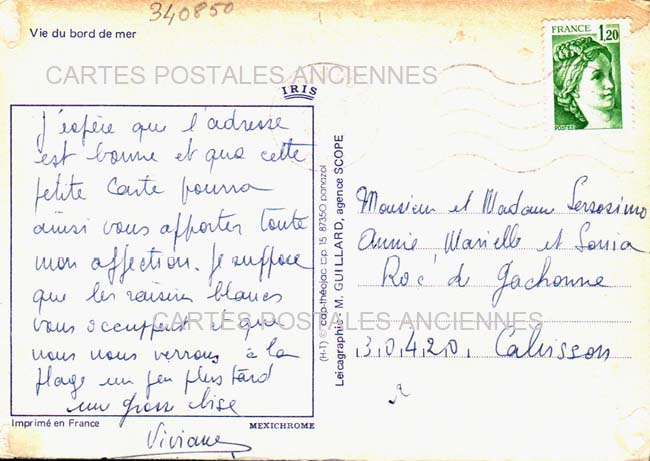 340850
Vie du bord de mer
FRANCE
1,20
POSTES
CARTES POSTALES ANCIENNES
IRIS
J'espère que l'adresse
est bonne et que cette
petite carte pourra
ainsi vous apporter toute
mon affection. Je suppose
que les raisins blancs
vous occupent et que
nous nous verrons à la
plage un peu plus tard
une grosse bise
Viviane
Imprimé en France
MEXICHROME
(H-T) © cap-théojac c.p. 15 87350 panazol
Leicagraphie: M. GUILLARD, agence SCOPE
Monsieur et Madame Sersosimo
Annie, Marielle et Sonia
Roc de Gachonne
30420 Calvisson
CARTES POSTALES ANCIENNES